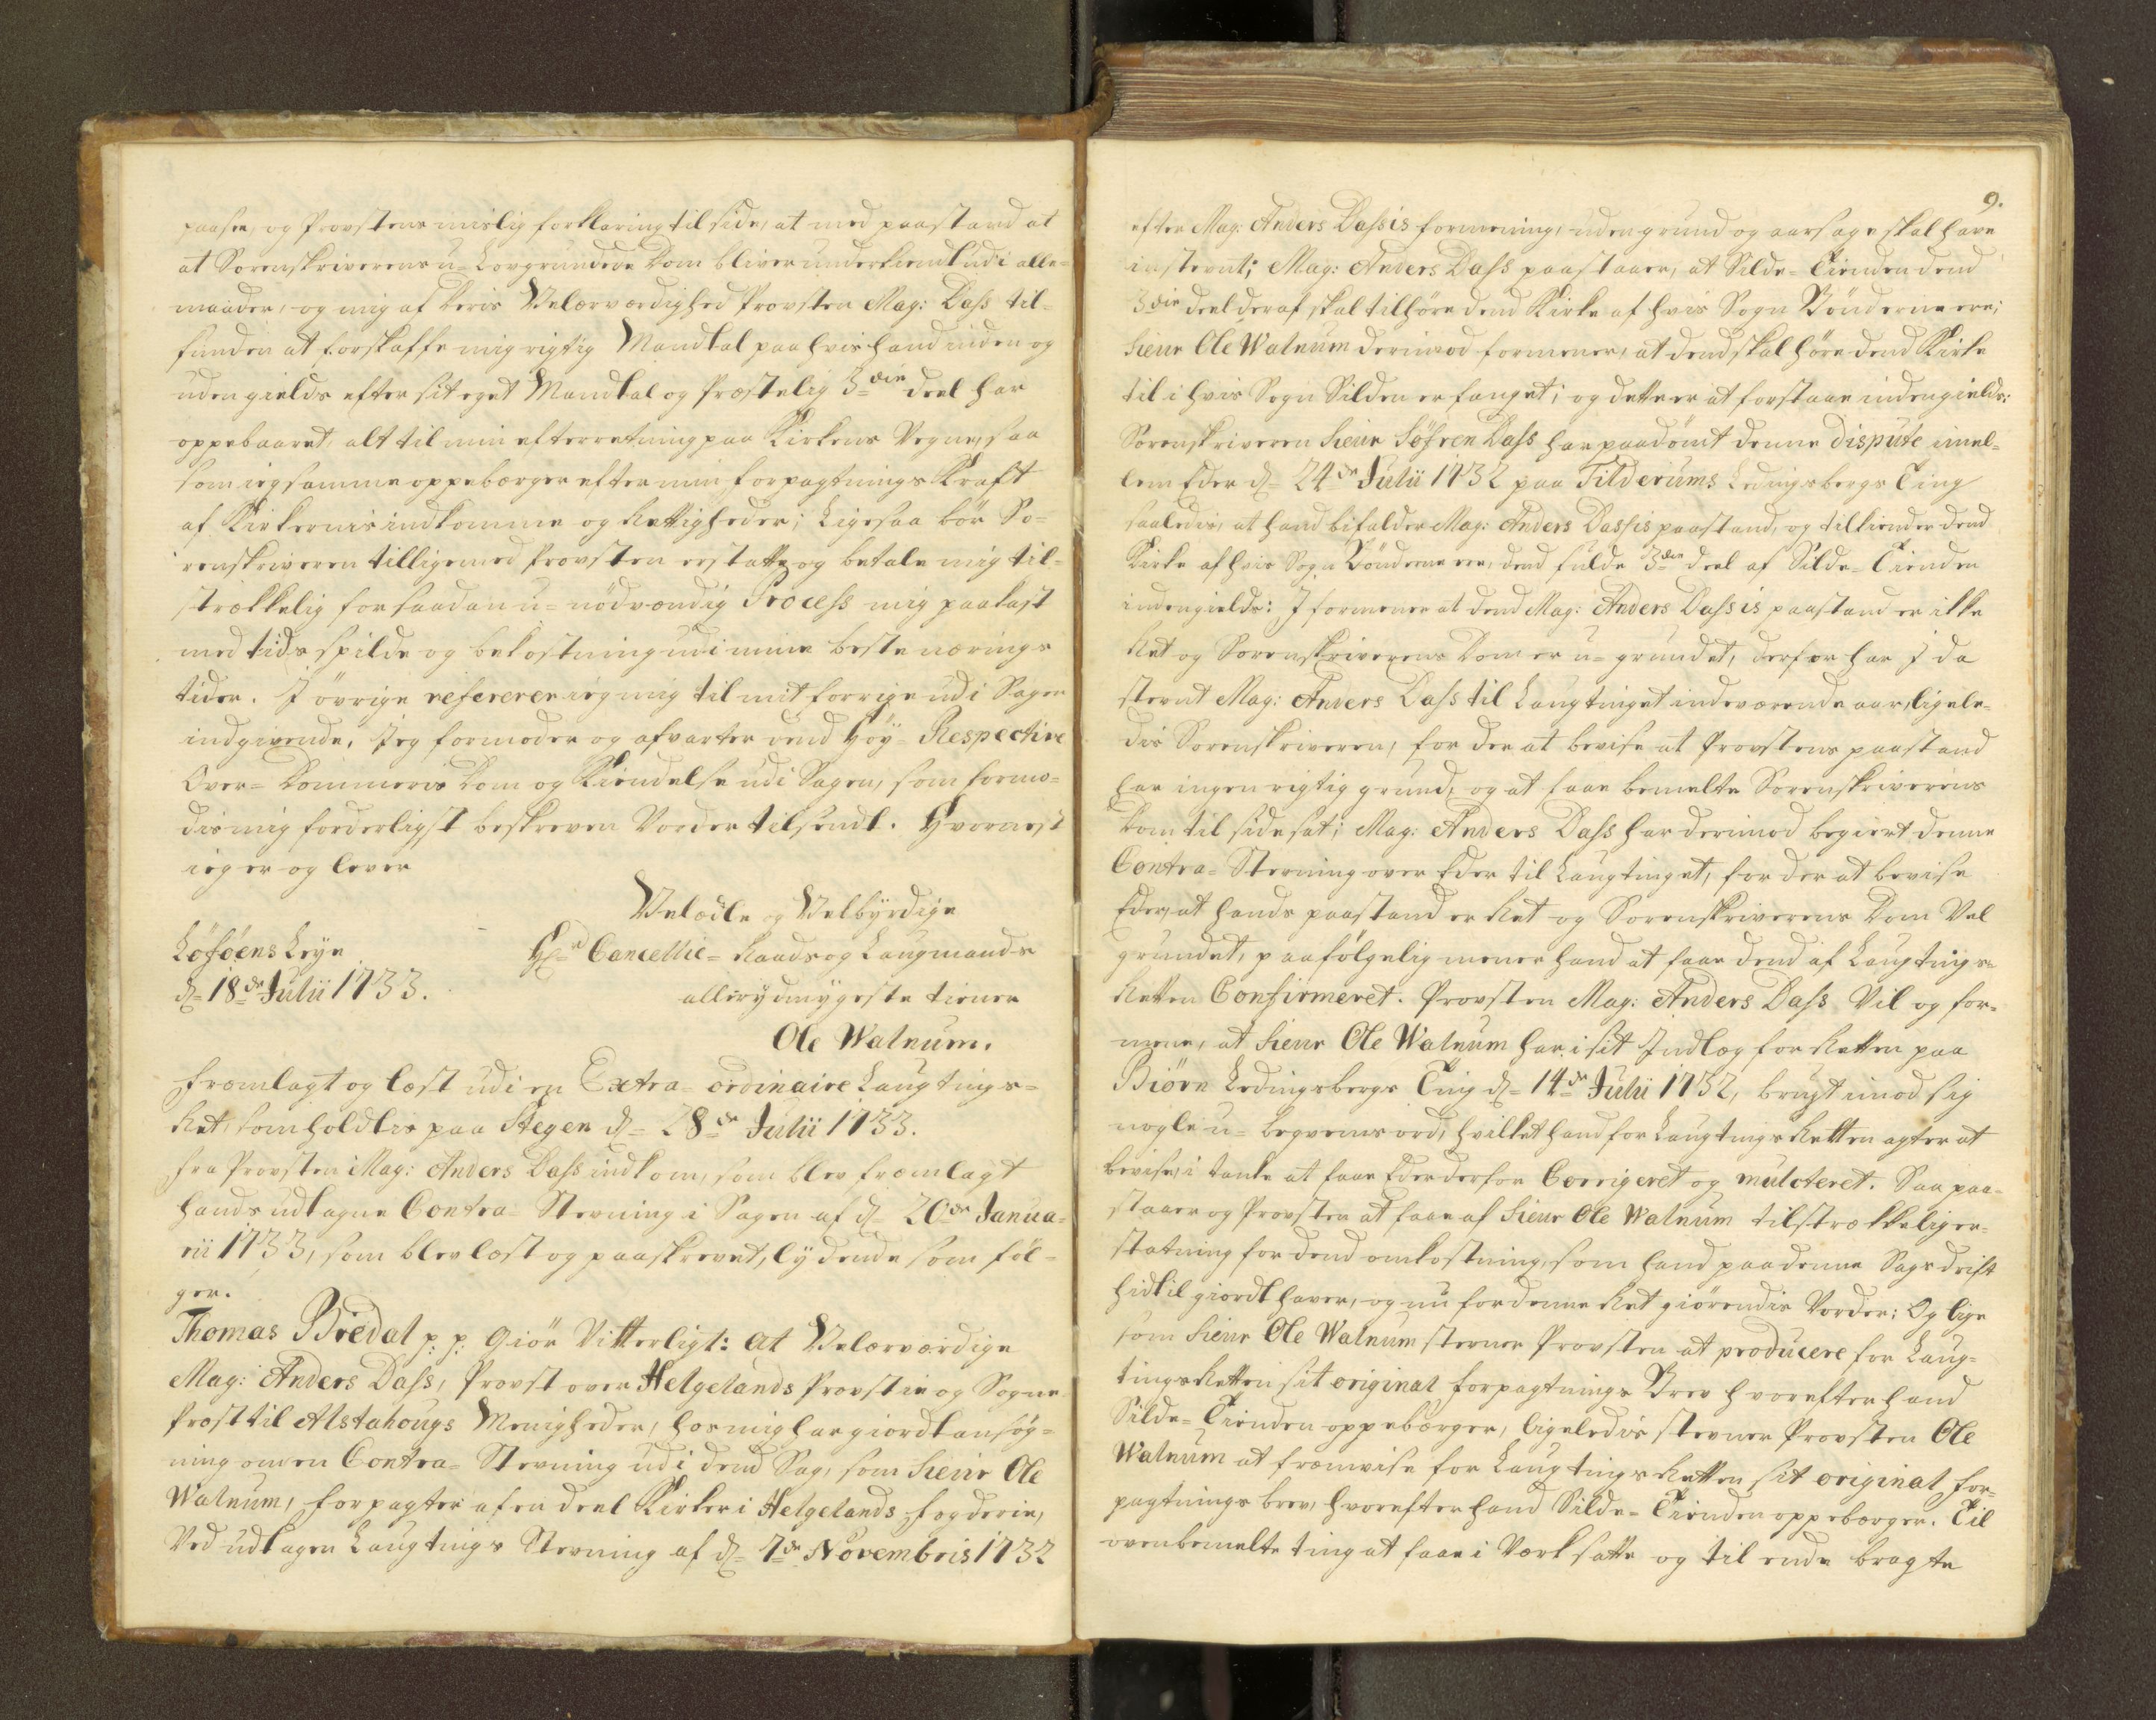 paasee, og Provstens mislig forklaring til side, at med paastand at
at Sorenskriverens u-Lovgrundede Dom bliver underkiendt udi alle
maader, og mig af Deris Velærværdighed Provsten Mag: Dass til-
funden at forskaffe mig rigtig Mandtal paa hvis hand inden og
uden gields efter sit eget Mandtal og Præstelig 3die deel har
oppebaaret, alt til min efterretning paa Kirkens Vegne, saa
som ieg samme oppebærger efter min forpagtnings Kraft
af Kirkernis indkomme og Rettigheder; Ligesaa bör So-
renskriveren tilligemed Provsten erstatte og betale mig til-
strækkelig for saadan u-nödvændig Process mig paakast
med tids spilde og bekostning udi mine beste nærings
tider. I övrige refererer ieg mig til mit forrige udi Sagen
indgivende. Jeg formoder og afvarter dend Höy-Respective
Over-Dommeris Dom og Kiendelse udi Sagen, som formo-
dis mig forderligst beskreven Vorder tilsendt. Hvornest
ieg er og lever
Velædle og Velbyrdige
Löföens Leye Hr Cancellie-Raads og Laugmands
d- 18de Julii 1733. allerydmygeste tiener
Ole Walnum.
Fremlagt og læst udi en Extra-ordinaire Laugtings-
Ret, som holdtis paa Stegen d- 28de Julii 1733.
Fra Provsten Mag: Anders Dass indkom, som blev fremlagt
hands udtagne Contra-Stevning i Sagen af d- 20de Janua-
rii 1733, som blev læst og paaskrevet, lydende som föl-
ger.
Thomas Bredal p: p: Giör Vitterligt: at Velærværdige
Mag: Anders Dass, Provst over Helgelands Provstie og Sogne
Præst til Alstahougs Menigheder, hos mig har giordt ansög-
ning om en Contra-Stevning udi dend Sag, som Sieur Ole
Walnum, forpagter af en deel Kirker i Helgelands fogderie,
Ved udtagen Laugtings Stevning af d- 7de Novembris 1732
9.
efter Mag: Anders Dassis formening, uden grund og aarsage skal have
instevnt; Mag: Anders Dass paastaaer, at Silde-Tienden dend
3die deel deraf skal tilhöre dend Kirke af hvis Sogn Bönderne ere;
Sieur Ole Walnum derimod formener, at dend skal höre dend Kirke
til i hvis Sogn Silden er fanget; og dette er at forstaae indengields:
Sorenskriveren Sieur Söfren Dass har paadömt denne dispute imel-
lem Eder d- 24de Julii 1732 paa Tilderums Ledingsbergs Ting
saaledis, at hand bifalder Mag: Anders Dassis paastand, og tilkiender dend
Kirke af hvis Sogn Bönderne ere, dend fulde 3die deel af Silde-Tienden
indengields: I formener at dend Mag: Anders Dassis paastand er ikke
Ret og Sorenskriverens Dom er u-grundet, derfor har I da
stevnt Mag: Anders Dass til Laugtinget indeværende aar, ligele-
dis Sorenskriveren, for der at bevise at Provstens paastand
har ingen rigtig grund, og at faae bemelte Sorenskriverens
Dom til side sat; Mag: Anders Dass har derimod begiert denne
Contra-Stevning over Eder til Laugtinget, for der at bevise
Eder, at hands paastand er Ret og Sorenskriverens Dom Vel
grundet, paafölgelig mener hand at faae dend af Laugtings-
Retten Confirmeret. Provsten Mag: Anders Dass Vil og for-
mene, at Sieur Ole Walnum har i sit Indlæg for Retten paa
Biörn Ledingsbergs Ting d- 14de Julii 1732, brugt imod sig
nogle u-beqvems ord, hvilket hand for Laugtings Retten agter at
bevise, i tanke at faae Eder derfor Corrigeret og mulcteret. Saa paa-
staaer og Provsten at faae af Sieur Ole Walnum tilstrækkelig er-
statning for dend omkostning, som hand paa denne Sags drift
hidtil giordt haver, og nu for denne Ret giörendis Vorder: Og lige
som Sieur Ole Walnum stevner Provsten at producere for Laug-
tings Retten sit original forpagtnings Brev hvorefter hand
Silde-Tienden oppebærger, ligeledis stevner Provsten Ole
Walnum at fremvise for Laugtings Retten sit original for-
pagtnings brev, hvorefter hand Silde-Tienden oppebærger. Til
ovenbemelte ting at faae i Værk satte og til ende bragte